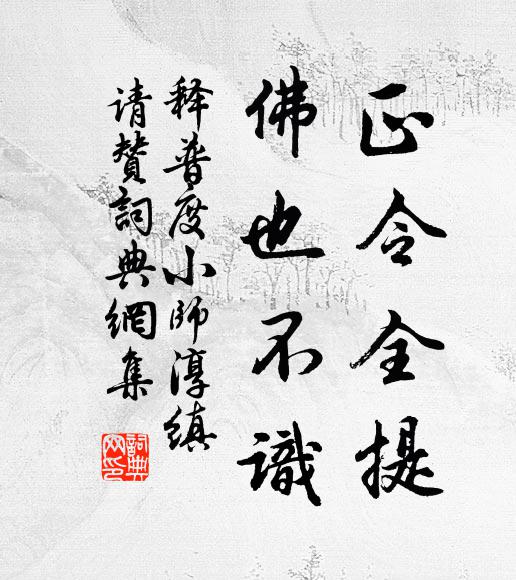 正令全提
佛也不識
释普度小師淳镇
请赞詞典網集
詞典
网印